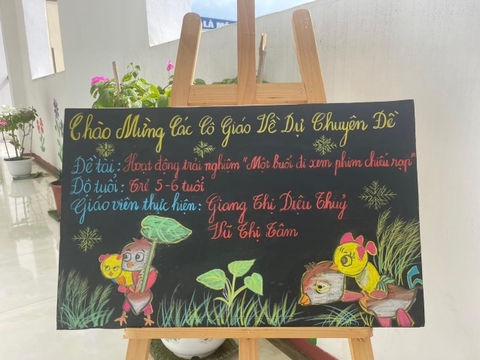 Chào Mừng Các Cô Giáo Về Dự Chuyên Đề
Đề tài: Hoạt động trải nghiệm "Một buổi đi xem phim chiếu rạp"
Độ tuổi: Trẻ 5-6 tuổi
Giáo viên thực hiện: Giang Thị Diệu Thuý
Vũ Thị Tâm